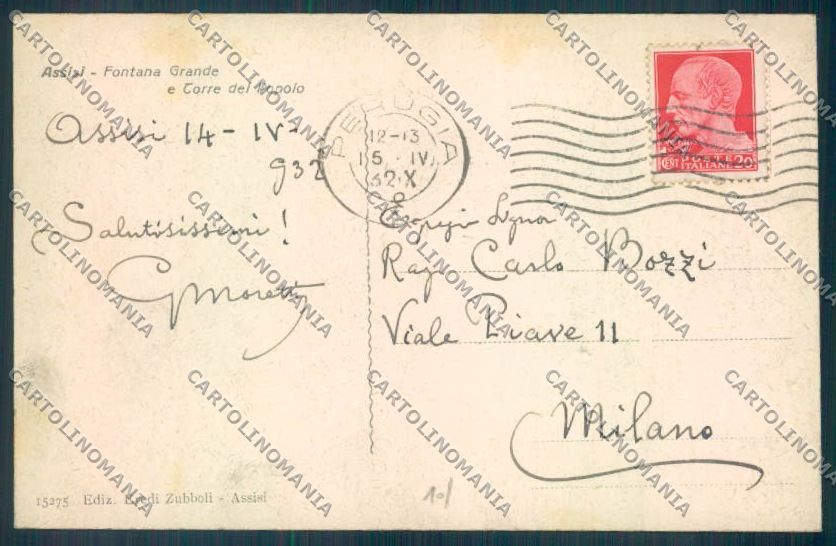 Assisi - Fontana Grande
e Torre del Popolo
Assisi 14-IV-
932
Salutisissimi!
GMoretti
PERUGIA
12-13
15 . IV.
32.X
POSTE
ITALIANE
CENT 20
Rag Carlo Bozzi
Viale Piave 11
Milano
15275 Ediz. Eredi Zubboli - Assisi
10/
CARTOLINOMANIA